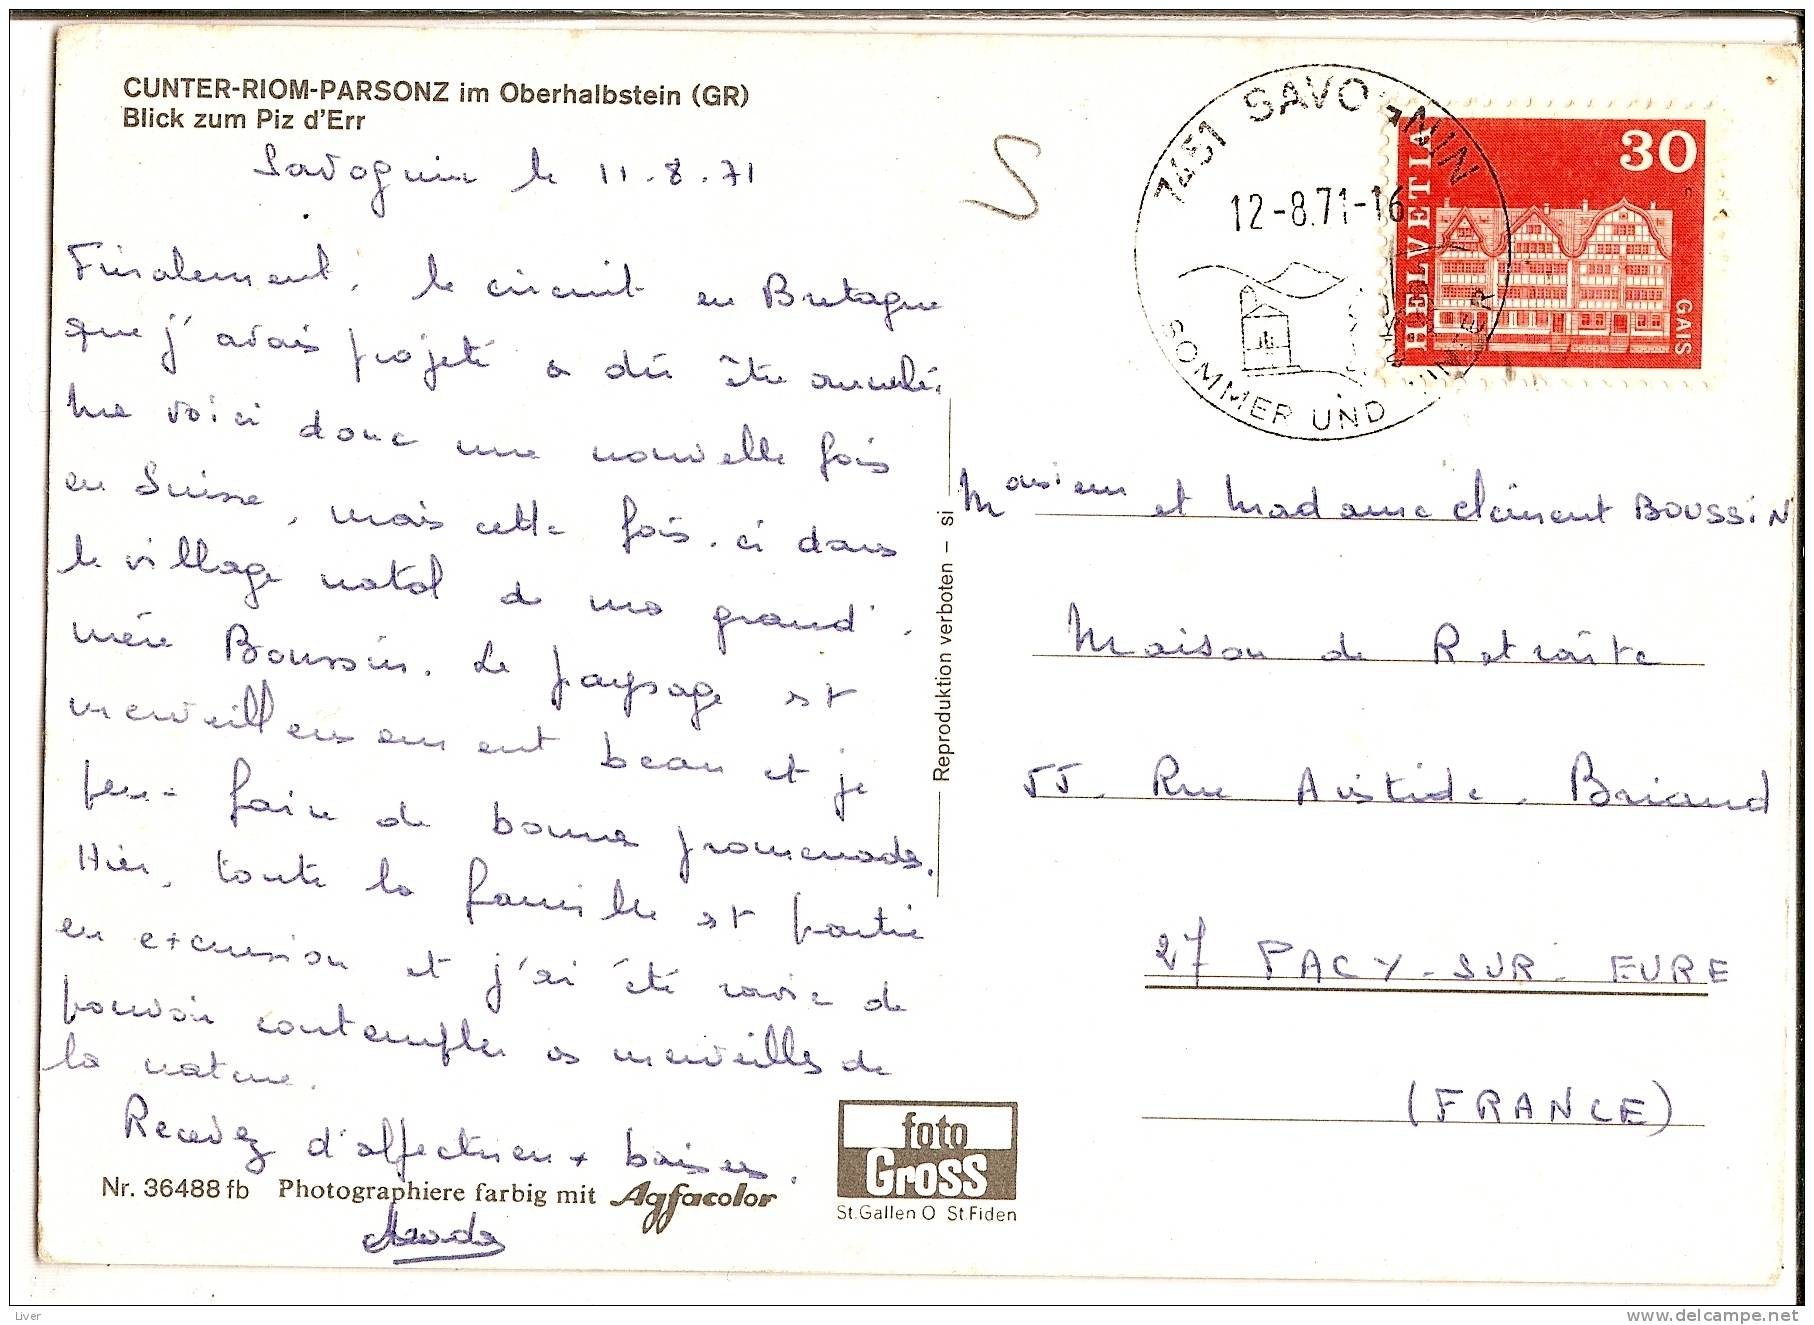 CUNTER-RIOM-PARSONZ im Oberhalbstein (GR)
Blick zum Piz d'Err
Savognin le 11.8.71
Finalement, le circuit en Bretagne
que j'avais projeté a dû être annulé.
Me voici donc une nouvelle fois
en Suisse, mais cette fois-ci dans
le village natal de ma grand'
mère Boussin. Le paysage est
merveilleusement beau et je
peux faire de bonnes promenades.
Hier, toute la famille est partie
en excursion et j'ai été ravie de
pouvoir contempler les merveilles de
la nature.
Recevez d'affectueux baisers.
Nr. 36488 fb Photographiere farbig mit Agfacolor
foto
Gross
St.Gallen O St.Fiden
Reproduktion verboten – si
S
7451 SAVOGNIN
12-8.71-16
SOMMER UND WINTER
HELVETIA
30
GAIS
Monsieur et Madame Clément BOUSSIN
Maison de Retraite
55, Rue Aristide-Briand
27 PACY-SUR-EURE
(FRANCE)
Liver
www.delcampe.net